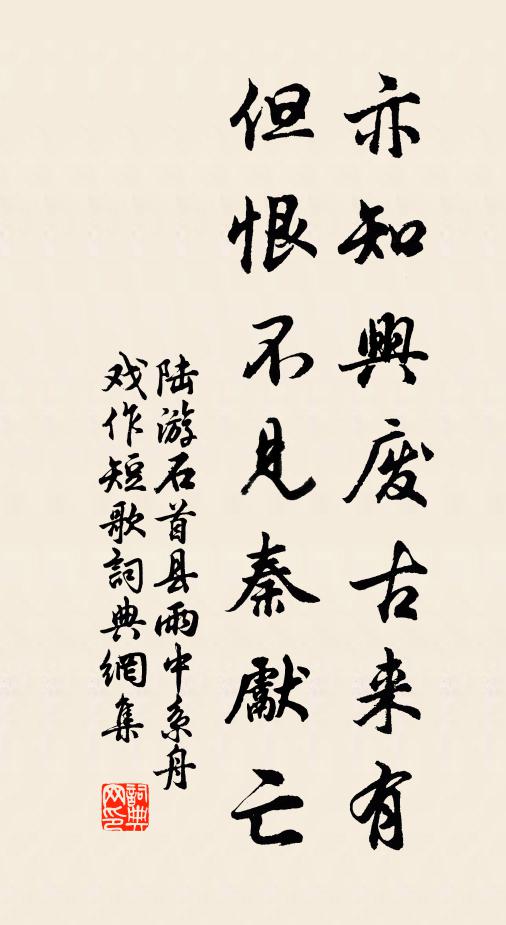 亦知興废古来有
但恨不見秦獻亡
陆游石首县雨中系舟
戏作短歌詞典網集
詞典
网印